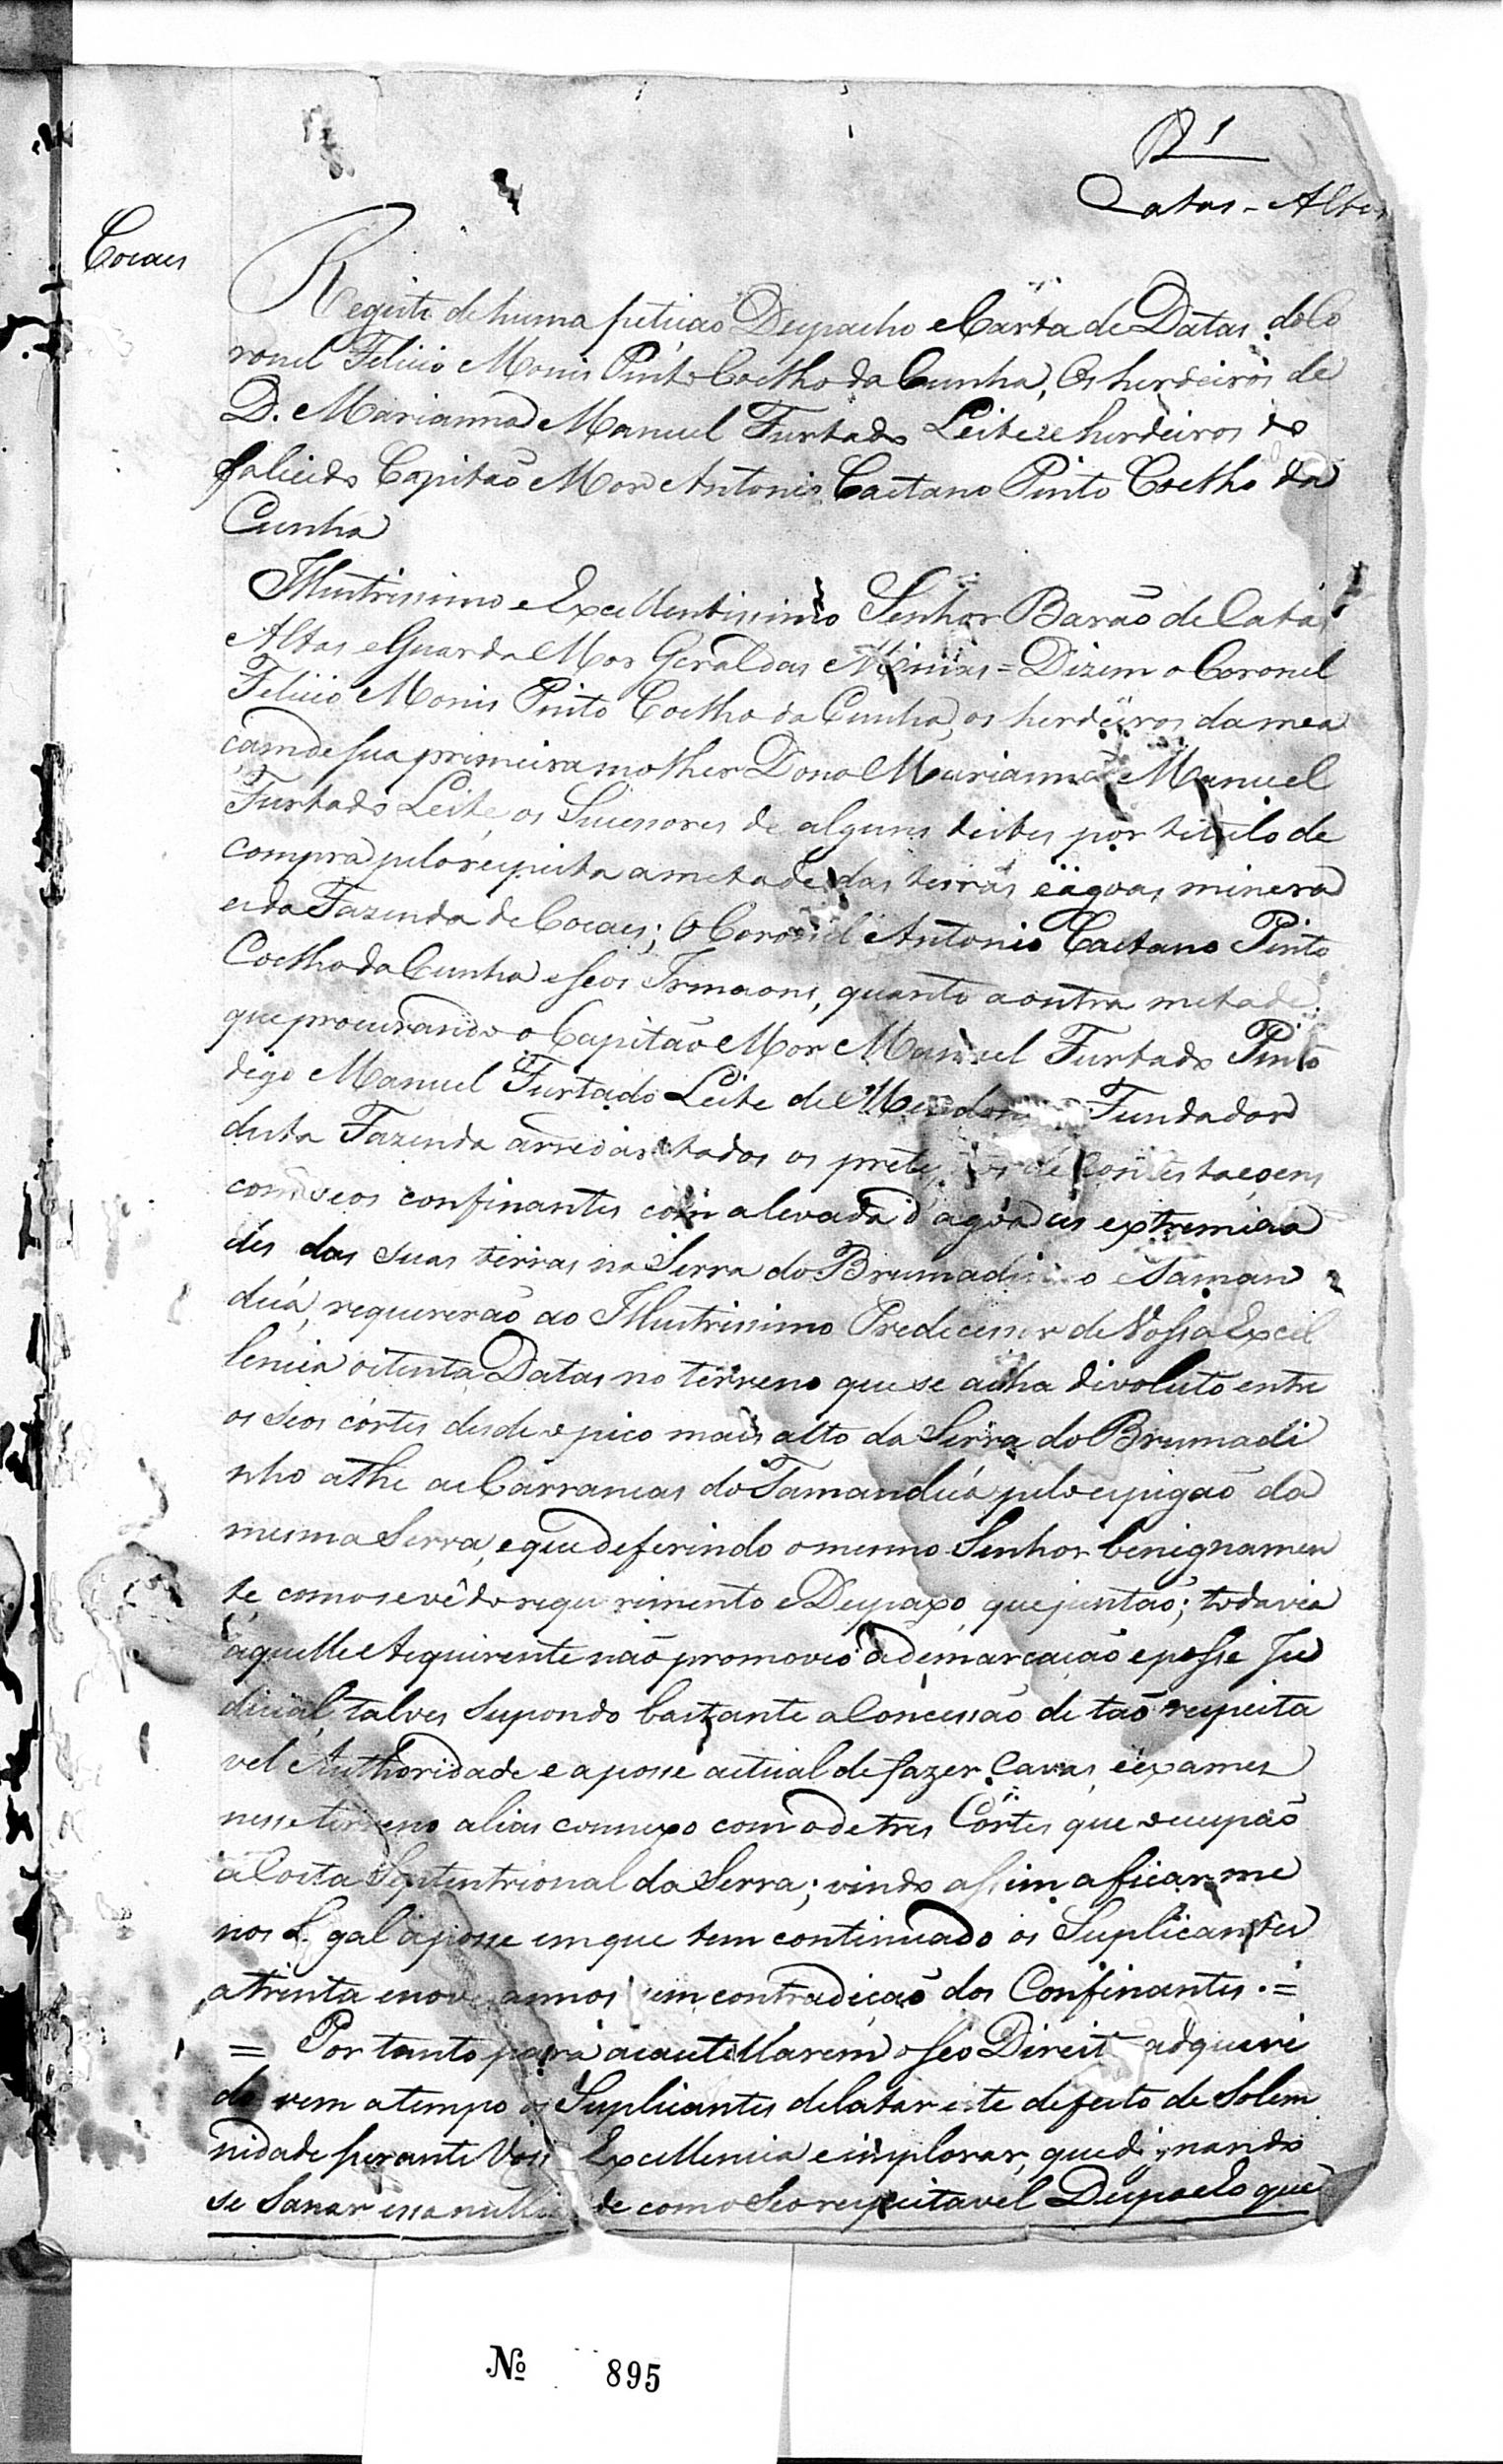 1
Catas-Altas
Cocaes
Registo de huma petiçao Despacho e Carta de Datas do Co
ronel Felicio Monis Pinto Coelho da Cunha, Os herdeiros de
D. Marianna Manuel Furtado Leite e herdeiros do
falicido Capitaõ Mor Antonio Caetano Pinto Coelho da
Cunha
Illustrissimo e Excellentissimo Senhor Baraõ de Catas
Altas e Guarda Mor Geral das Minas = Dizem o Coronel
Felicio Monis Pinto Coelho da Cunha, os herdeiros da mea
çam de sua primeira molher Dona Marianna Manuel
Furtado Leite, os Sucessores de alguns destes por titulo de
compra pelo respeita a metade das terras e agoas minera
es da Fazenda de Cocaes; O Coronel Antonio Caetano Pinto
Coelho da Cunha e seos Irmaons, quanto a outra metade
que procurando o Capitaõ Mor Manuel Furtado Pinto
digo Manuel Furtado Leite de Mendonça Fundador
desta Fazenda arredar todos os pretextos de Contestaçoens
com seos confinantes com a levada d'agoa as extremida
des das suas terras na Serra do Brumadinho e Taman
duá, requereraõ ao Illustrissimo Predecessor de Vossa Excel
lencia oitenta Datas no terreno que se acha divoluto entre
os seos córtes desde o pico mais alto da Serra do Brumadi
nho athe as Carrancas do Tamanduá pelo espigaõ da
mesma Serra, e que deferindo o mesmo Senhor benignamen
te como se vê do requerimento e Despaxo que juntaõ; todavia
aquelle Aquirente naõ promoveo a demarcaçaõ e posse Ju
dicial, talves Supondo bastante a Concessaõ de taõ respeita
vel Authoridade e a posse actual de fazer Cavas, e exames
nesse terreno alias connexo com o de tres Córtes que occupaõ
a Costa Septentrional da Serra; vindo assim a ficar me
nos Legal a posse em que tem continuado os Suplicantes
a trinta e nove annos sem contradiçaõ dos Confinantes. =
= Por tanto para acautellarem o seo Direito adqueri
do vem a tempo os Suplicantes delatar este defeito de Solem
nidade perante Vossa Excellencia e implorar, que dignando
se Sanar essa nullidade com o Seo respeitavel Despacho que
Nº 895